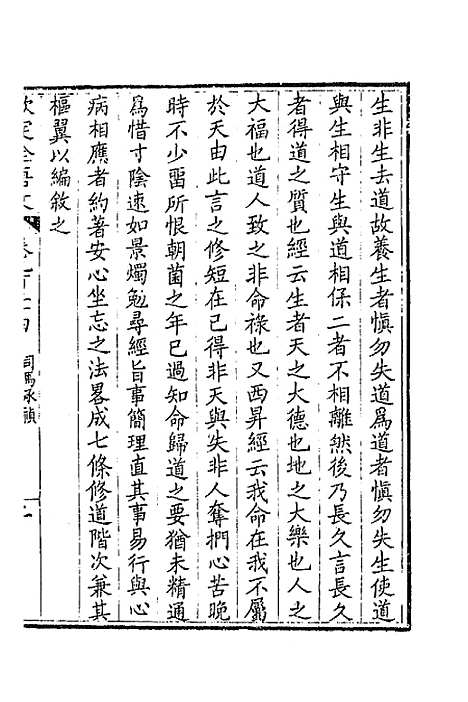 生非生去道故養生者愼勿失道爲道者愼勿失生使道
與生相守生與道相保二者不相離然後乃長久言長久
者得道之質也經云生者天之大德也地之大樂也人之
大福也道人致之非命祿也又西昇經云我命在我不屬
於天由此言之修短在己得非天與失非人奪捫心苦晚
時不少畱所恨朝菌之年已過知命歸道之要猶未精通
爲惜寸陰速如景燭勉尋經旨事簡理直其事易行與心
病相應者約著安心坐忘之法畧成七條修道階次兼其
樞翼以編敘之
欽定全唐文
司馬承禎